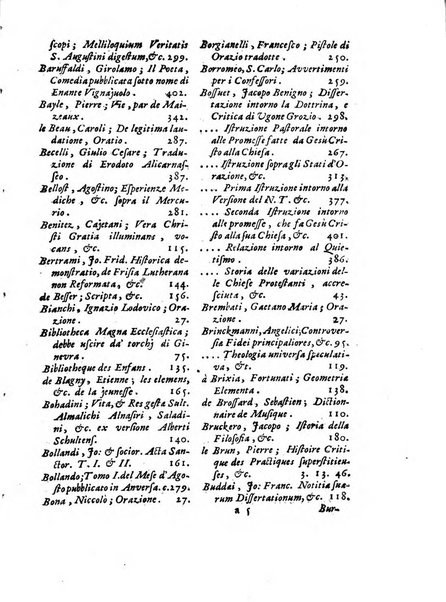 scopi; Melliloquium Veritatis
S. Augustini digestum, &c. 299.
Baruffaldi, Girolamo; Il Poeta,
Comedia pubblicata sotto nome di
Enante Vignajuolo. 402.
Bayle, Pierre; Vie, par de Mai-
zeaux. 342.
le Beau, Caroli; De legitima lau-
datione, Oratio. 287.
Becelli, Giulio Cesare; Tradu-
zione di Erodoto Alicarnas-
seo. 387.
Bellost, Agostino; Esperienze Me-
diche, &c. sopra il Mercu-
rio. 281.
Benitez, Cajetani; Vera Chri-
sti Gratia illuminans, vo-
cans, &c. 115.
Bertrami, Jo. Frid. Historica de-
monstratio, de Frisia Lutherana
non Reformata, &c. 144.
de Besser; Scripta, &c. 156.
Bianchi, Ignazio Lodovico; Ora-
zione. 27.
Bibliotheca Magna Ecclesiastica;
debbe uscire da' torchj di Gi-
nevra. 75.
Bibliotheque des Enfans. 135.
de Blagny, Etienne; les elemens,
&c. de la jeunesse. 165.
Bohadini; Vita, & Res gestæ Sult.
Almalichi Alnasiri, Saladi-
ni, &c. ex versione Alberti
Schultens. 140.
Bollandi, Jo: &c. Acta San-
ctor. T. I. & II. 161.
Bollando; Tomo I. del Mese d'Ago-
sto pubblicato in Anversa. c. 279.
Bona, Niccolò; Orazione. 27.
Borgianelli, Francesco; Pistole di
Orazio tradotte. 250.
Borromeo, S. Carlo; Avvertimenti
per i Confessori. 89.
Bossuet, Jacopo Benigno; Disser-
tazione intorno la Dottrina, e
Critica di Ugone Grozio. 298.
.... Istruzione Pastorale intorno
alle promesse fatte da Gesù Cri-
sto alla Chiesa. 267.
.... Istruzione sopra gli Stati d'O-
razione, &c. 313.
.... Prima Istruzione intorno alla
Versione del N. T. &c. 377.
.... Seconda Istruzione intorno
alle promesse, che fa Gesù Cri-
sto alla sua Chiesa, &c. 401.
.... Relazione intorno al Quie-
tismo. 386.
.... Storia delle variazioni del-
le Chiese Protestanti, accre-
sciuta, &c. 43.
Brembati, Gaetano Maria; Ora-
zione. 27.
Brinckmanni, Angelici; Controver-
sia Fidei principaliores, &c. 95.
.... Theologia universa speculati-
va, &c. 119.
à Brixia, Fortunati; Geometria
Elementa. 138.
de Brossard, Sebastien; Diction-
naire de Musique. 110.
Bruckero, Jacopo; Istoria della
Filosofia, &c. 180.
le Brun, Pierre; Histoire Criti-
que des Practiques superstitieu-
ses. 3. 13. 46.
Buddai, Jo: Franc. Notitia sua-
rum Dissertationum, &c. 118.
a 5 Bur-